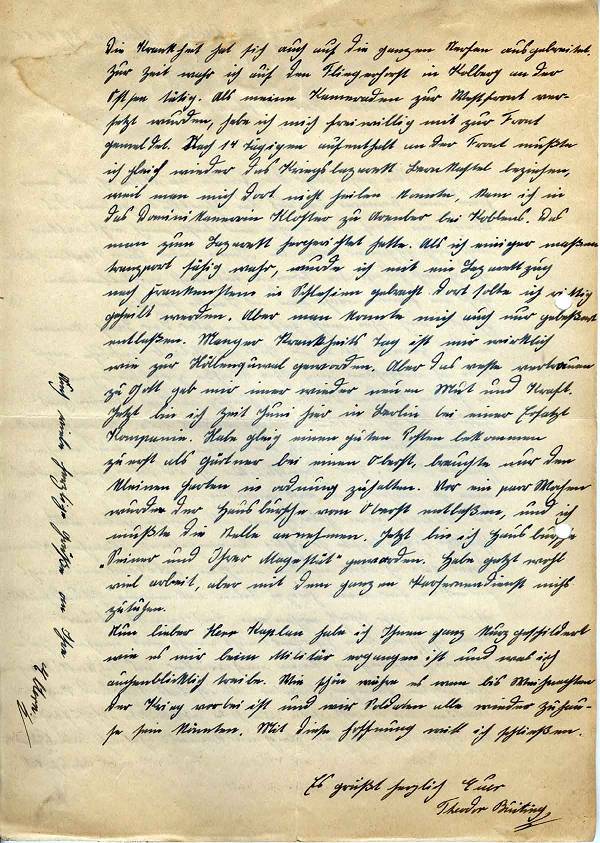 Die Krankheit hat sich auch auf die ganzen Nerfen ausgebreitet.
Zur Zeit wahr ich auf den Fliegerhorst in Kolberg an der
Ostsee tätig. Als meine Kameraden zur Westfront ver-
setzt wurden, habe ich mich freiwillig mit zur Front
gemeldet. Nach 14 tägigen aufenthalt an der Front mußte
ich gleich wieder das Kriegslazarett beziehen,
weil man mich dort nicht heilen konnte, kam ich in
das Dominikanerin Kloster zu Arenber bei Koblens. Das
man zum Lazarett hergerichtet hatte. Als ich einiger maßen
transport fähig wahr, wurde ich mit ein Lazarettzug
nach Frankenstein in Schlesien gebracht dort solte ich richtig
geheilt werden. Aber man konnte mich auch nur gebeßert
entlaßen. Manger Krankheits Tag ist mir wirklich
wie zur Höllenqüwal geworden. Aber das veste vertrauen
zu Gott gab mir imer wieder neuen Mut und Kraft.
Jetzt bin ich zeit Juni hier in Berlin bei einer Ersatzt
Kompanie. Habe gleig einen guten Posten bekommen
zuerst als Gärtner bei einen Oberst, brauchte nur den
kleinen Garten in ordnung zuhalten. Vor ein paar Wochen
wurde der Hausbursche vom Oberst entlaßen, und ich
mußte die stelle annehmen. Jetzt bin ich Hausbursche
"Seiner und Ihrer Magestät" geworden. Habe jetzt wohl
viel arbeit, aber mit dem ganzen Kasernendienst nichts
zutuhen.
Nun lieber Herr Kaplan habe ich Ihnen ganz kurz geschildert
wie es mir beim Militär ergangen ist und was ich
augenblicklich treibe. Wie schön währe es wen bis Weihnachten
der Krieg vorbei ist und wir Soldaten alle wieder zuhau-
se sein könnten. Mit diese Hoffnung will ich schließen.
Es grüßt herzlich Euer
Theodor Büting
Auch viele herzliche Grüße an Ihre